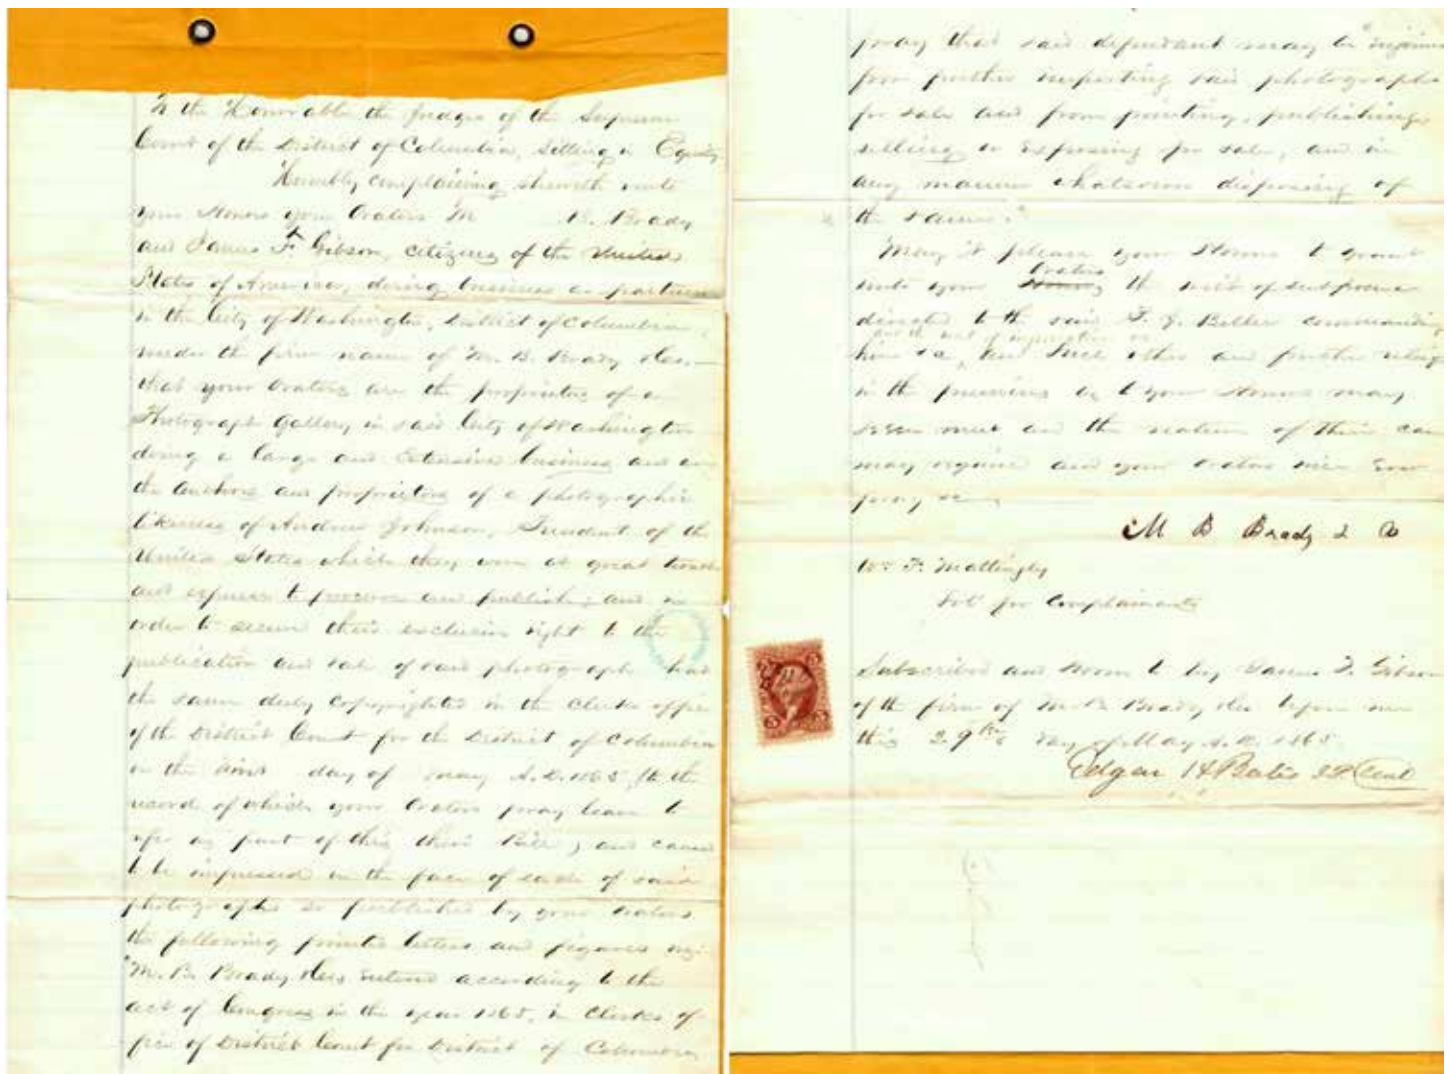 To the Honorable the Judges of the Supreme
Court of the District of Columbia, sitting in Equity
Humbly complaining sheweth unto
your Honors your Orators M B. Brady
and James F. Gibson, citizens of the United
States of America, doing business as partners
in the City of Washington, District of Columbia,
under the firm name of M. B. Brady &Co.—
that your Orators are the proprietors of a
Photograph Gallery in said City of Washington
doing a large and extensive business and are
the authors and proprietors of a photographic
likeness of Andrew Johnson, President of the
United States which they were at great trouble
and expense to procure and publish; and in
order to secure their exclusive right to the
publication and sale of said photograph had
the same duly copyrighted in the Clerks office
of the District Court for the District of Columbia
on the day of May A.D. 1865, to the
record of which your Orators pray leave to
refer as part of this their Bill, and caused
to be impressed on the face of each of said
photographs so published by your orators
the following printed letters and figures viz:
"M. B. Brady &Co entered according to the
act of Congress in the year 1865, in Clerks of
fice of District Court for District of Columbia
pray that said defendant may be enjoined
from further importing said photographs
for sale and from printing, publishing,
selling or exposing for sale, and in
any manner whatsoever disposing of
the same.
May it please your Honors to grant
unto your Orators the writ of subpoena
directed to the said F. J. Beller commanding
and the writ of injunction
him &c, and such other and further relief
in the premises as to your Honors may
seem meet and the nature of their case
may require and your Orators will ever
pray &c
M B Brady & Co
Wm F. Mattingly
Sol for Complainants
Subscribed and sworn to by James F. Gibson
of the firm of M. B. Brady &Co before me
this 29th day of May A.D. 1865.
Edgar H Bates
5 5